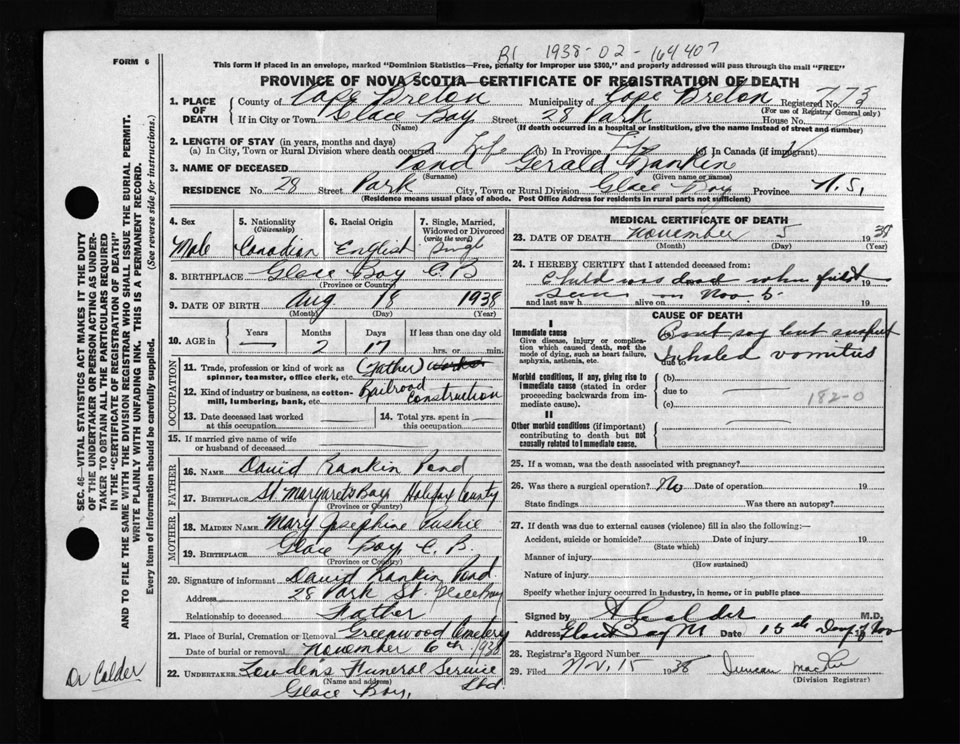 B1 1938-02-164407
FORM 6
This form if placed in an envelope, marked "Dominion Statistics—Free, penalty for improper use $300," and properly addressed will pass through the mail "FREE"
PROVINCE OF NOVA SCOTIA—CERTIFICATE OF REGISTRATION OF DEATH
1. PLACE OF DEATH County of Cape Breton Municipality of Cape Breton Registered No. 773
(For use of Registrar General only)
If in City or Town Glace Bay Street 28 Park House No.
(Name) (If death occurred in a hospital or institution, give the name instead of street and number)
2. LENGTH OF STAY (in years, months and days)
(a) In City, Town or Rural Division where death occurred Life (b) In Province Life (c) In Canada (if immigrant)
3. NAME OF DECEASED Pond Gerald Rankin
(Surname) (Given name or names)
RESIDENCE No. 28 Street Park City, Town or Rural Division Glace Bay Province N.S.
(Residence means usual place of abode. Post Office Address for residents in rural parts not sufficient)
4. Sex Male
5. Nationality (Citizenship) Canadian
6. Racial Origin English
7. Single, Married, Widowed or Divorced (write the word) Single
8. BIRTHPLACE Glace Bay C B
(Province or Country)
9. DATE OF BIRTH Aug 18 1938
(Month) (Day) (Year)
10. AGE in Years — Months 2 Days 17 If less than one day old hrs. or min.
OCCUPATION
11. Trade, profession or kind of work as spinner, teamster, office clerk, etc. (Father)
12. Kind of industry or business, as cotton-mill, lumbering, bank, etc. Railroad Construction
13. Date deceased last worked at this occupation
14. Total yrs. spent in this occupation
15. If married give name of wife or husband of deceased
FATHER
16. NAME David Rankin Pond
17. BIRTHPLACE St. Margaret's Bay Halifax County
(Province or Country)
MOTHER
18. MAIDEN NAME Mary Josephine
19. BIRTHPLACE Glace Bay, C. B.
(Province or Country)
20. Signature of informant David Rankin Pond
Address 28 Park St. Glace Bay
Relationship to deceased Father
21. Place of Burial, Cremation or Removal Greenwood Cemetery
Date of burial or removal November 6th 1938
22. UNDERTAKER Lowden's Funeral Service Ltd
(Name and address)
Glace Bay,
MEDICAL CERTIFICATE OF DEATH
23. DATE OF DEATH November 5 1938
(Month) (Day) (Year)
24. I HEREBY CERTIFY that I attended deceased from:
Child was dead when first 19
seen on Nov 5.
and last saw h alive on 19
CAUSE OF DEATH
I
Immediate cause
Give disease, injury or complication which caused death, not the mode of dying, such as heart failure, asphyxia, asthenia, etc.
Cant say but suspect
Inhaled vomitus
due to
Morbid conditions, if any, giving rise to immediate cause (stated in order proceeding backwards from immediate cause).
(b)
due to
(c) 182-0
II
Other morbid conditions (if important) contributing to death but not causally related to immediate cause.
25. If a woman, was the death associated with pregnancy?
26. Was there a surgical operation? No Date of operation 19
State findings Was there an autopsy?
27. If death was due to external causes (violence) fill in also the following:—
Accident, suicide or homicide? Date of injury 19
(State which)
Manner of injury
(How sustained)
Nature of injury
Specify whether injury occurred in industry, in home, or in public place
Signed by A Calder M.D.
Address Glace Bay Date 15th Day of Nov 19
28. Registrar's Record Number
29. Filed Nov. 15 1938 Duncan
(Division Registrar)
SEC. 46—VITAL STATISTICS ACT MAKES IT THE DUTY
OF THE UNDERTAKER OR PERSON ACTING AS UNDER-
TAKER TO OBTAIN ALL THE PARTICULARS REQUIRED
IN THE "CERTIFICATE OF REGISTRATION OF DEATH"
AND TO FILE THE SAME WITH THE DIVISION REGISTRAR WHO SHALL ISSUE THE BURIAL PERMIT.
WRITE PLAINLY WITH UNFADING INK. THIS IS A PERMANENT RECORD.
Every item of information should be carefully supplied. (See reverse side for instructions.)
Dr Calder